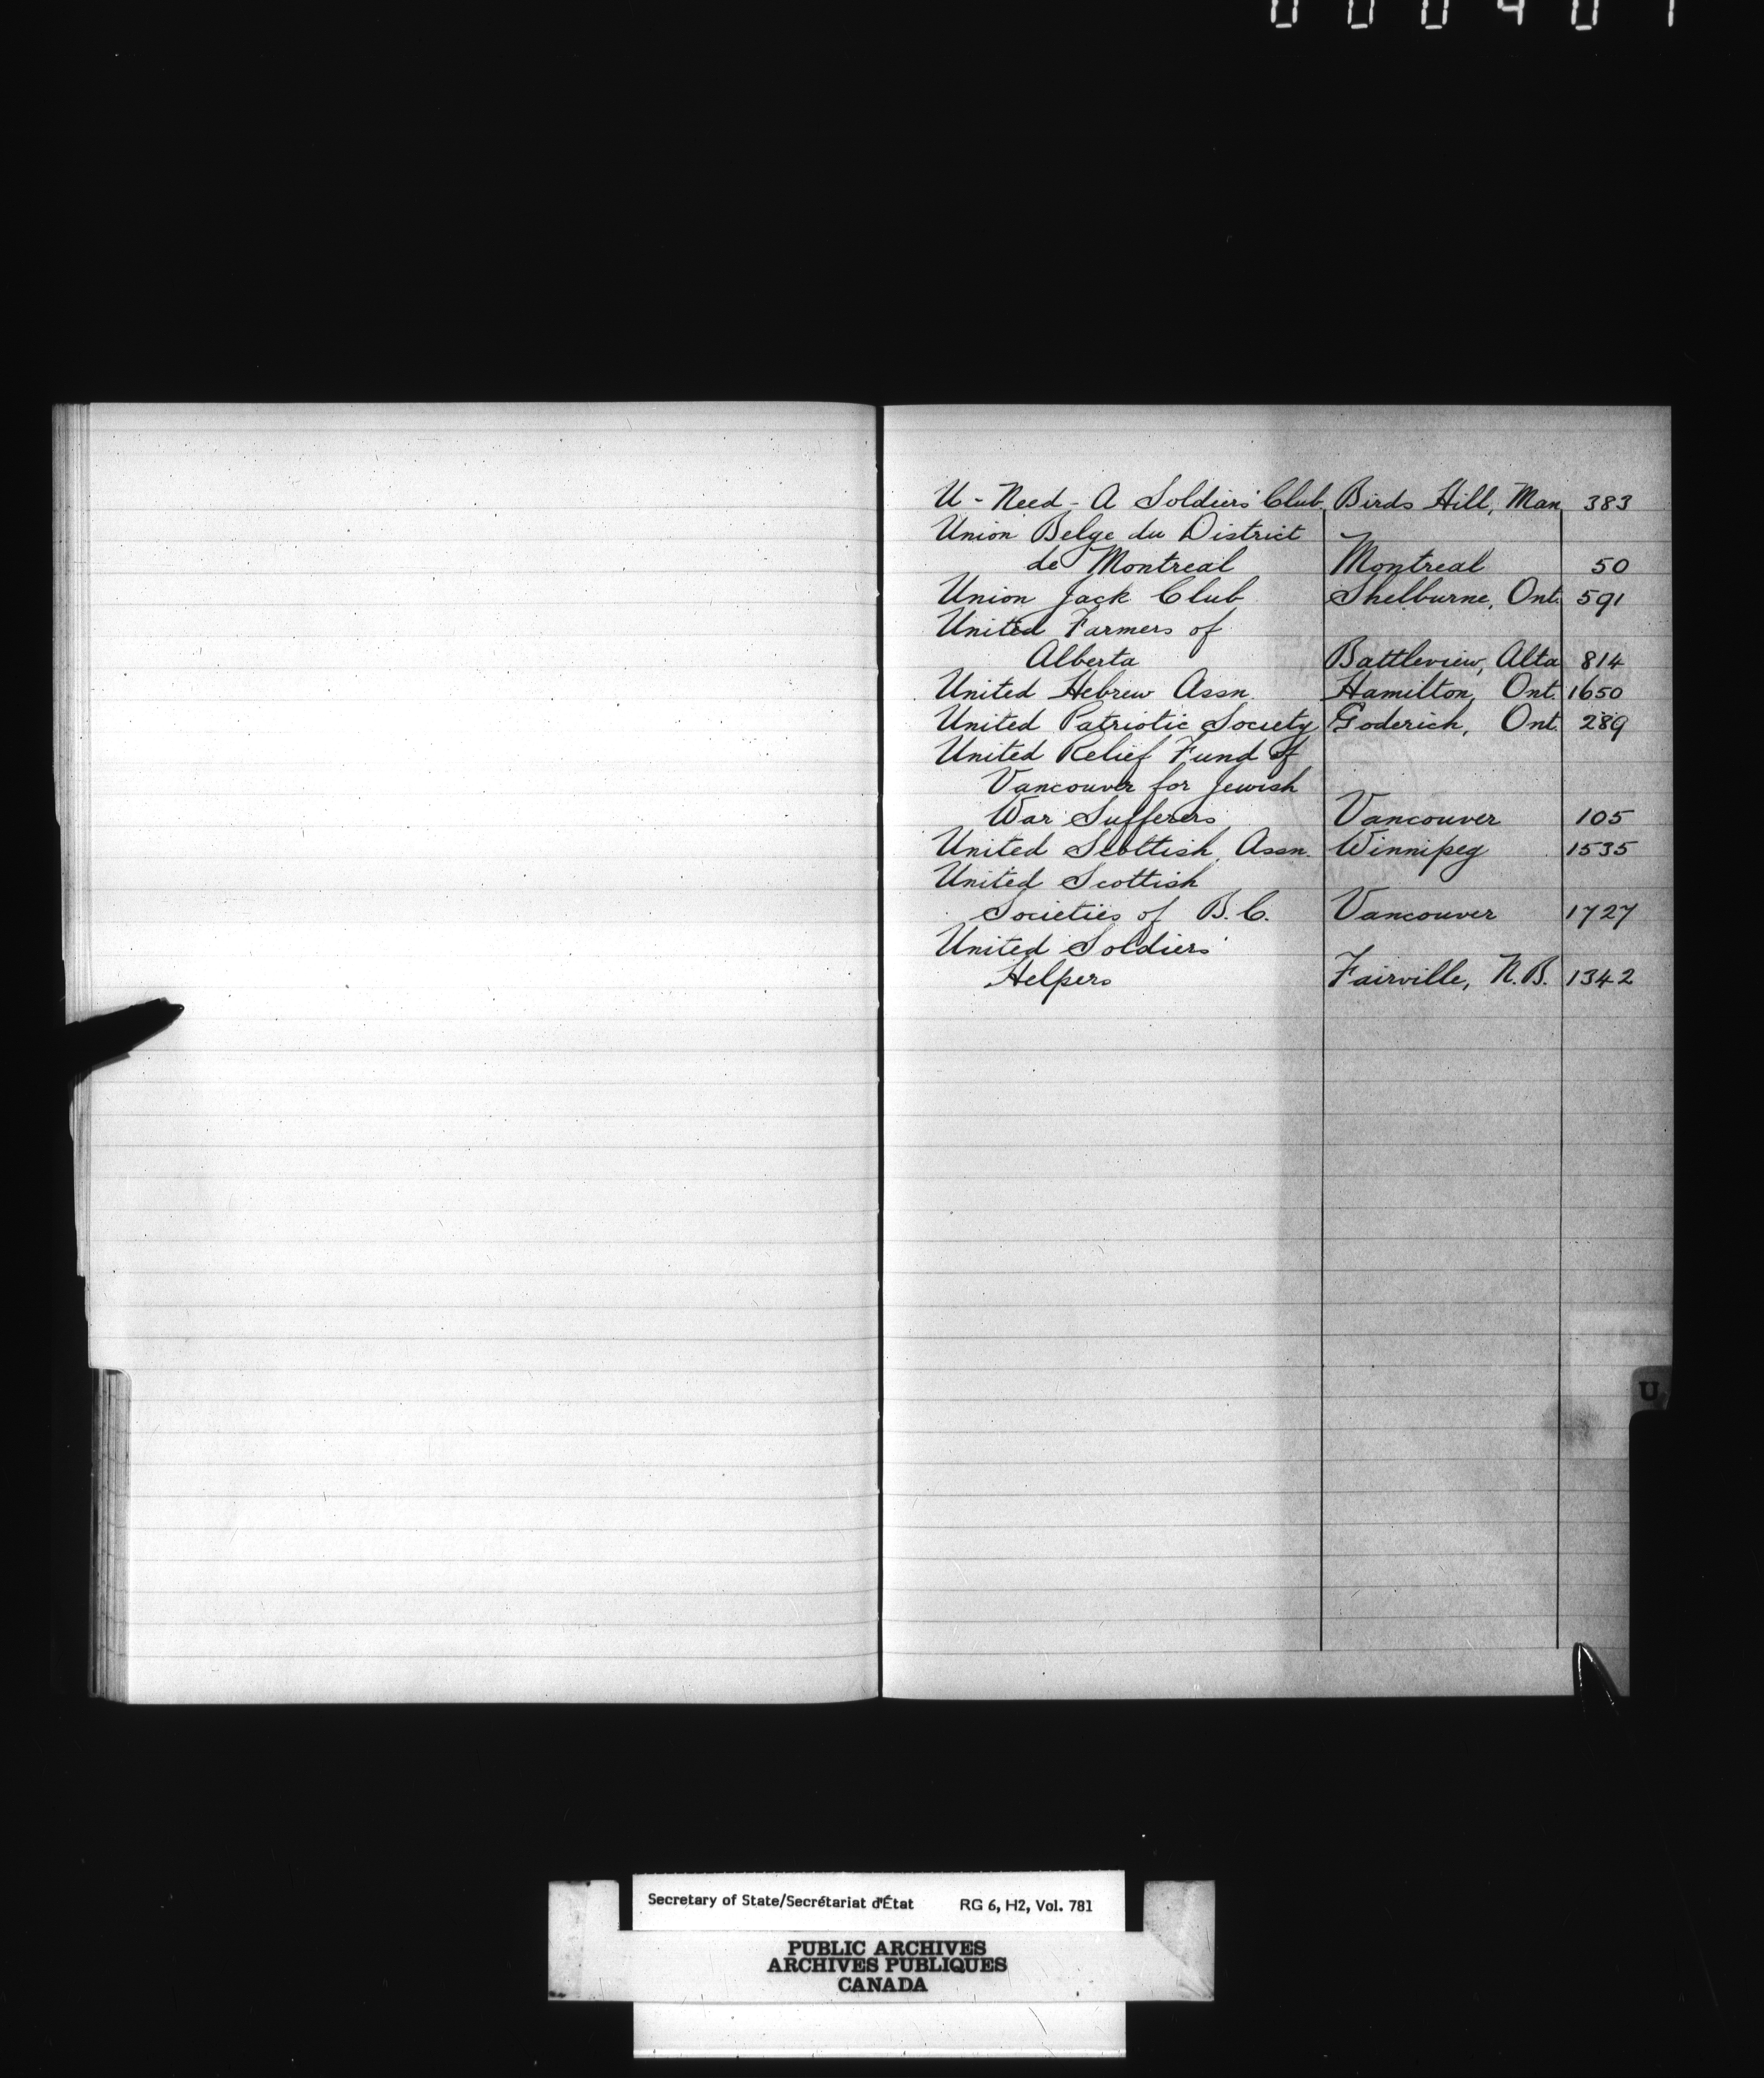 U - Need - A Soldiers' Club, Birds Hill, Man 383
Union Belge du District
de Montreal Montreal 50
Union Jack Club Shelburne, Ont. 591
United Farmers of
Alberta Battleview, Alta 814
United Hebrew Assn. Hamilton, Ont. 1650
United Patriotic Society Goderich, Ont. 289
United Relief Fund of
Vancouver for Jewish
War Sufferers Vancouver 105
United Scottish Assn. Winnipeg 1535
United Scottish
Societies of B.C. Vancouver 1727
United Soldiers'
Helpers Fairville, N.B. 1342
U
Secretary of State/Secrétariat d'État RG 6, H2, Vol. 781
PUBLIC ARCHIVES
ARCHIVES PUBLIQUES
CANADA